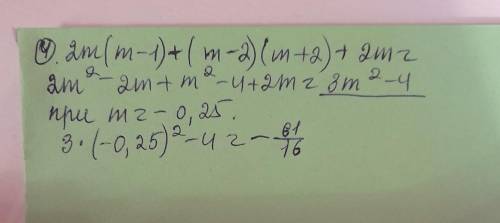 ④. 2m(m-1)+(m-2)(m+2)+2m=
2m²-2m+m²-4+2m=3m²-4
при m=-0,25.
3·(-0,25)²-4=-61/16